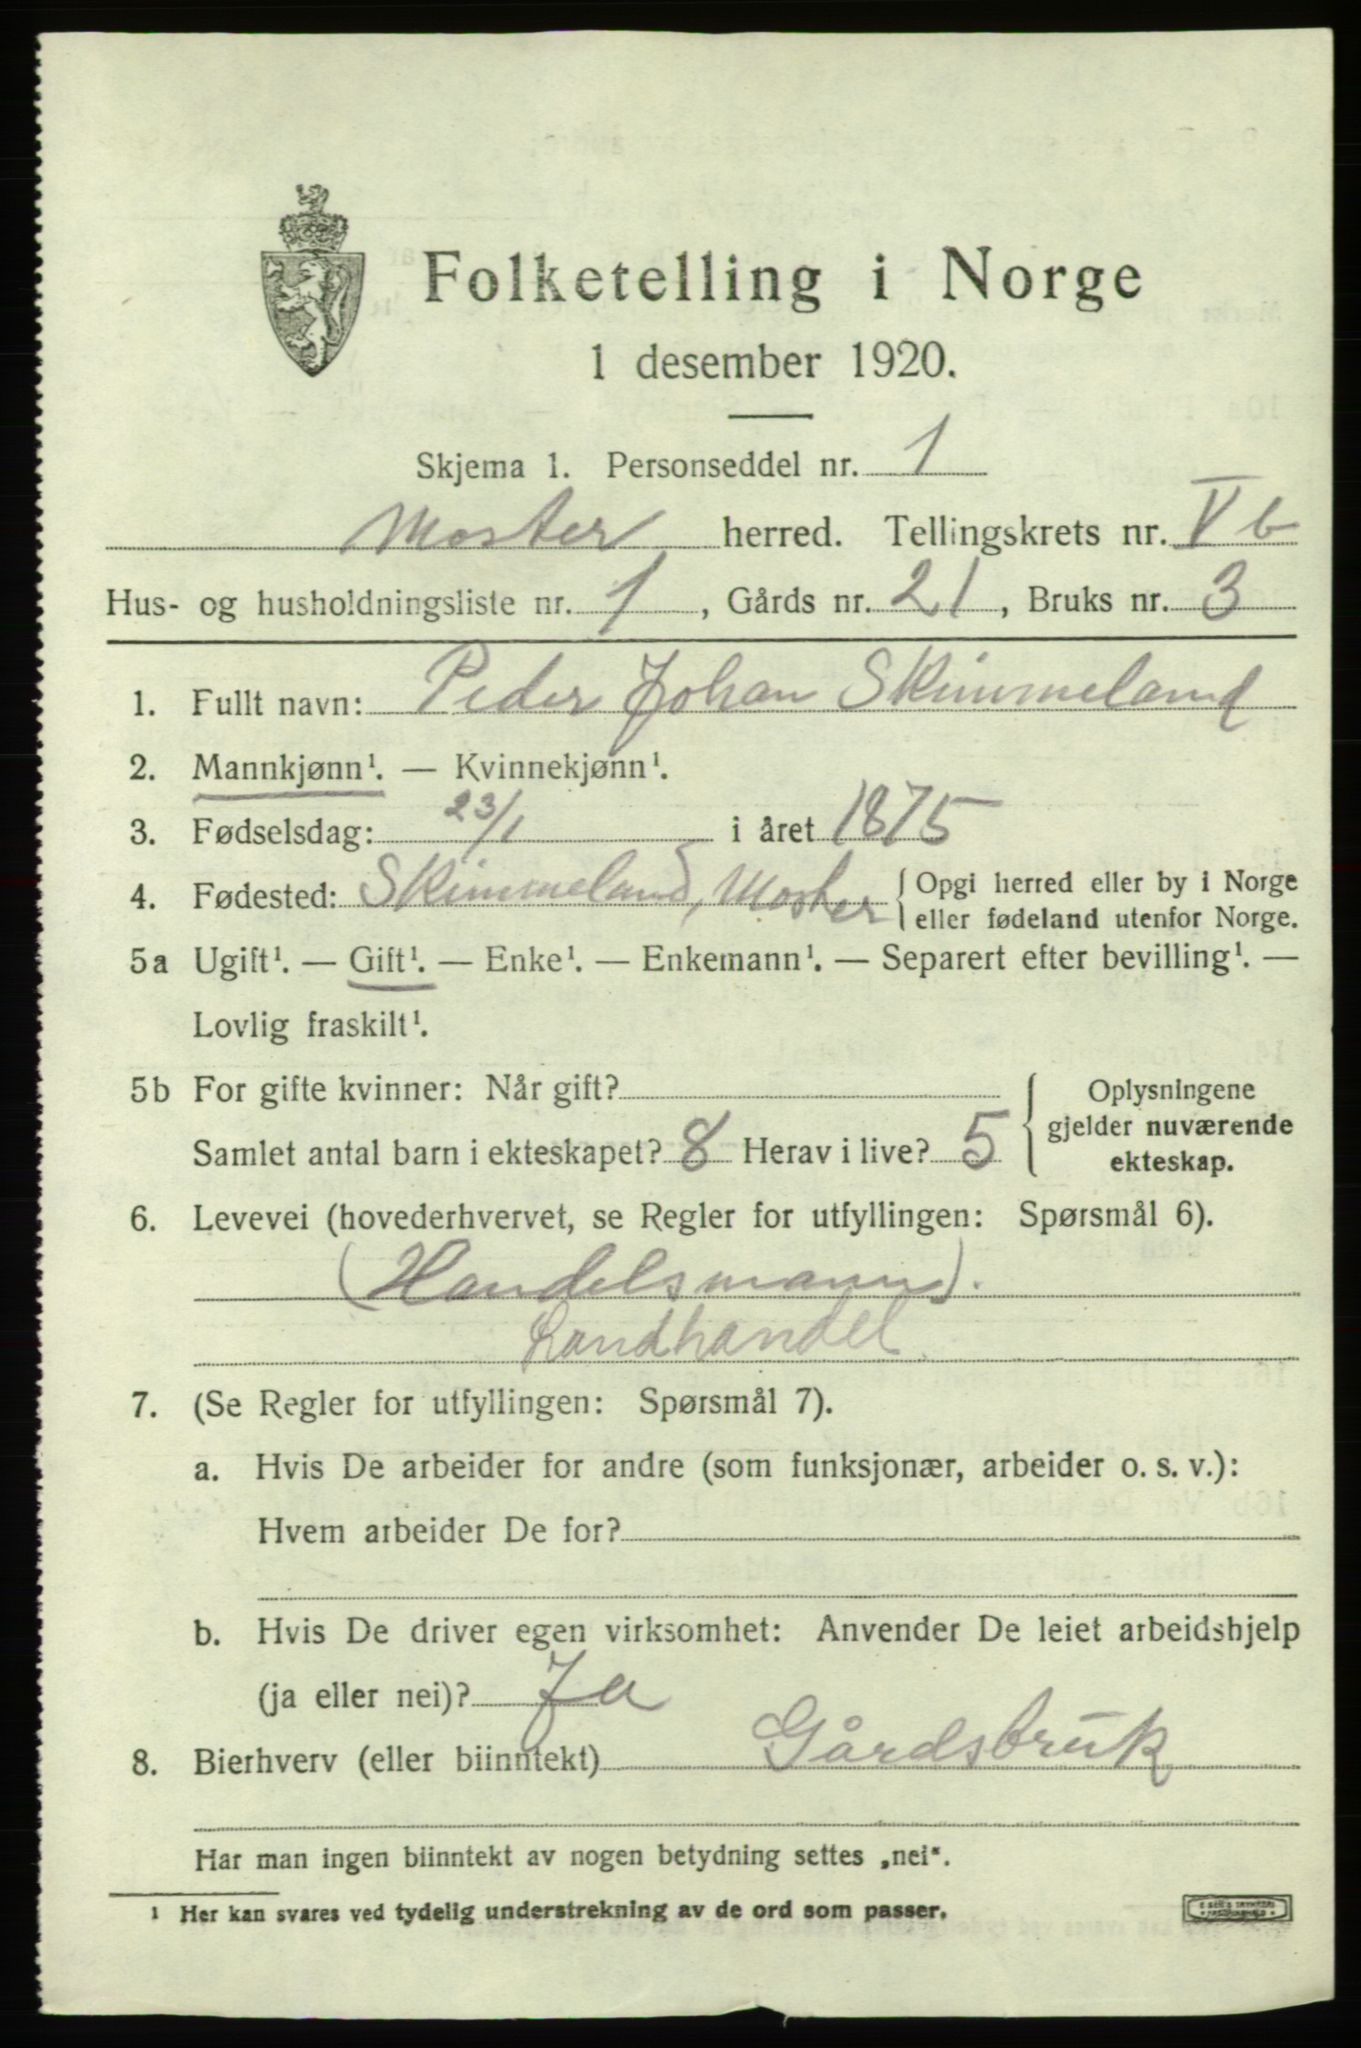 Folketelling i Norge
1 desember 1920.
Skjema 1. Personseddel nr. 1
Moster herred. Tellingskrets nr. V b
Hus- og husholdningsliste nr. 1, Gårds nr. 21, Bruks nr. 3
1. Fullt navn: Peder Johan Skimmeland
2. Mannkjønn¹. — Kvinnekjønn¹.
3. Fødselsdag: 23/1 i året 1875
4. Fødested: Skimmeland, Moster { Opgi herred eller by i Norge
eller fødeland utenfor Norge.
5a Ugift¹. — Gift¹. — Enke¹. — Enkemann¹. — Separert efter bevilling¹. —
Lovlig fraskilt¹.
5b For gifte kvinner: Når gift?
Samlet antal barn i ekteskapet? 8 Herav i live? 5
Oplysningene
gjelder nuværende
ekteskap.
6. Levevei (hovederhvervet, se Regler for utfyllingen: Spørsmål 6).
(Handelsmann).
Landhandel
7. (Se Regler for utfyllingen: Spørsmål 7).
a. Hvis De arbeider for andre (som funksjonær, arbeider o. s. v.):
Hvem arbeider De for?
b. Hvis De driver egen virksomhet: Anvender De leiet arbeidshjelp
(ja eller nei)? Ja
8. Bierhverv (eller biinntekt) Gårdsbruk
Har man ingen biinntekt av nogen betydning settes „nei".
¹ Her kan svares ved tydelig understrekning av de ord som passer.